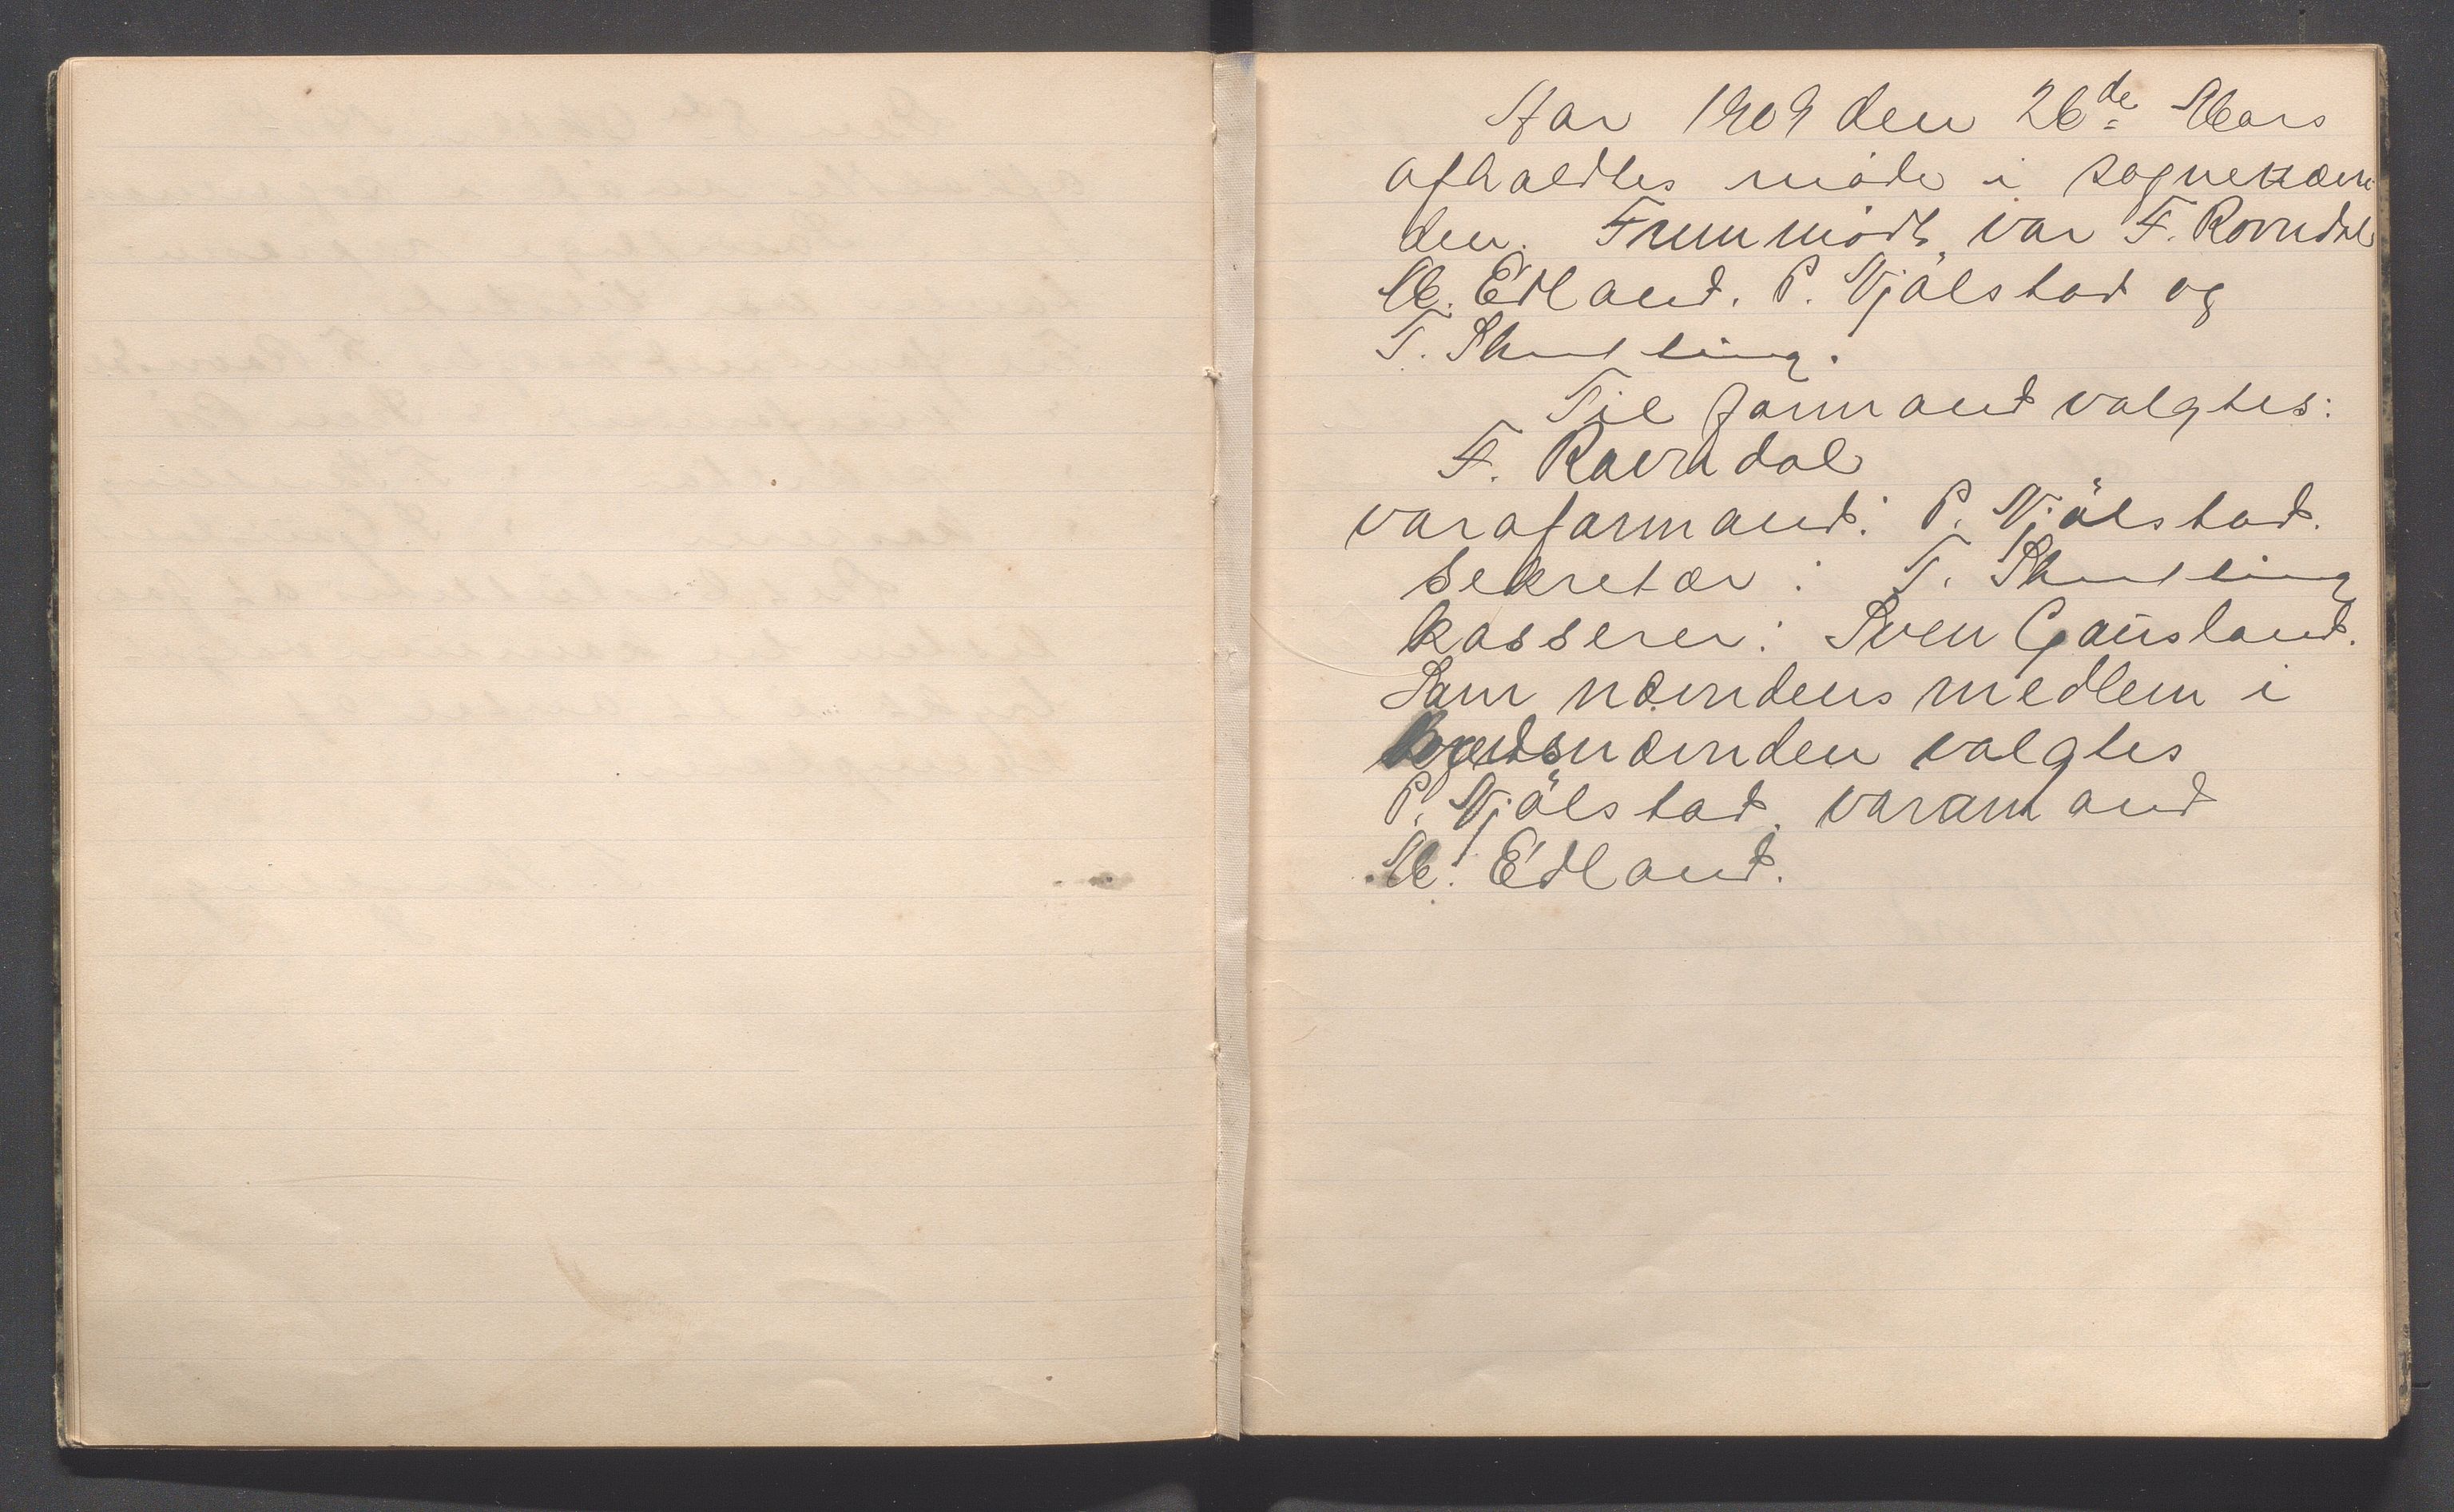 Aar 1909 den 26de Mars
afholdtes møde i sognenævn
den. Fremmødt var F. Ravndal
M. Edland. P. Njålstad og
T. Skretting.
Til formand valgtes:
F. Ravndal
varaformand: P. Njålstad.
Sekretær: T. Skretting
kasserer: Sven Gausland.
Som nævndens medlem i
kredsnævnden valgtes
P. Njålstad. varamand
M. Edland.